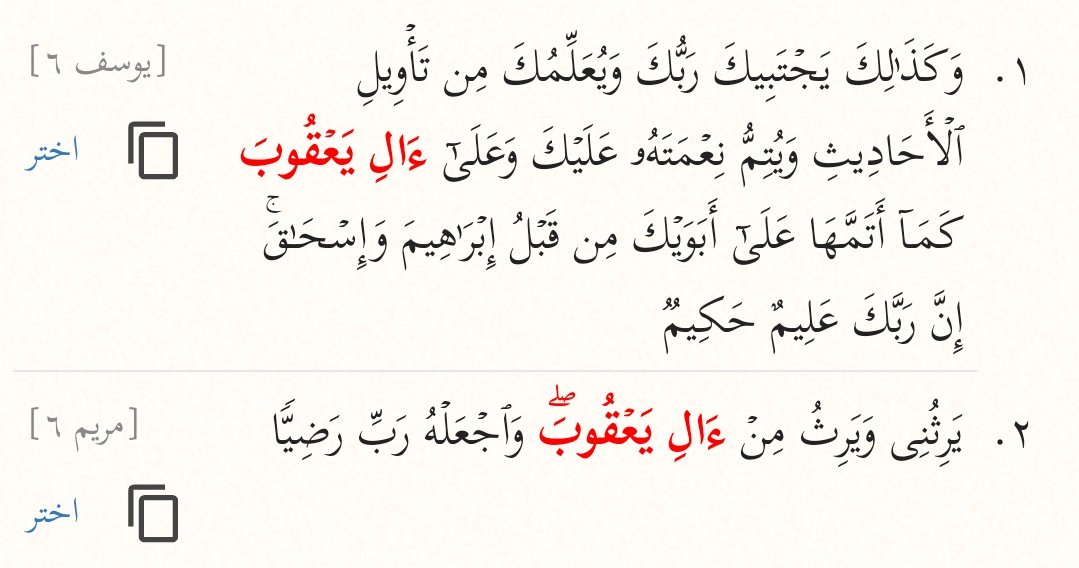 ١. وَكَذَٰلِكَ يَجْتَبِيكَ رَبُّكَ وَيُعَلِّمُكَ مِن تَأْوِيلِ [يوسف ٦]
ٱلْأَحَادِيثِ وَيُتِمُّ نِعْمَتَهُۥ عَلَيْكَ وَعَلَىٰٓ ءَالِ يَعْقُوبَ
اختر
كَمَآ أَتَمَّهَا عَلَىٰٓ أَبَوَيْكَ مِن قَبْلُ إِبْرَٰهِيمَ وَإِسْحَـٰقَ ۚ
إِنَّ رَبَّكَ عَلِيمٌ حَكِيمٌ
٢. يَرِثُنِى وَيَرِثُ مِنْ ءَالِ يَعْقُوبَ ۖ وَٱجْعَلْهُ رَبِّ رَضِيًّا [مريم ٦]
اختر